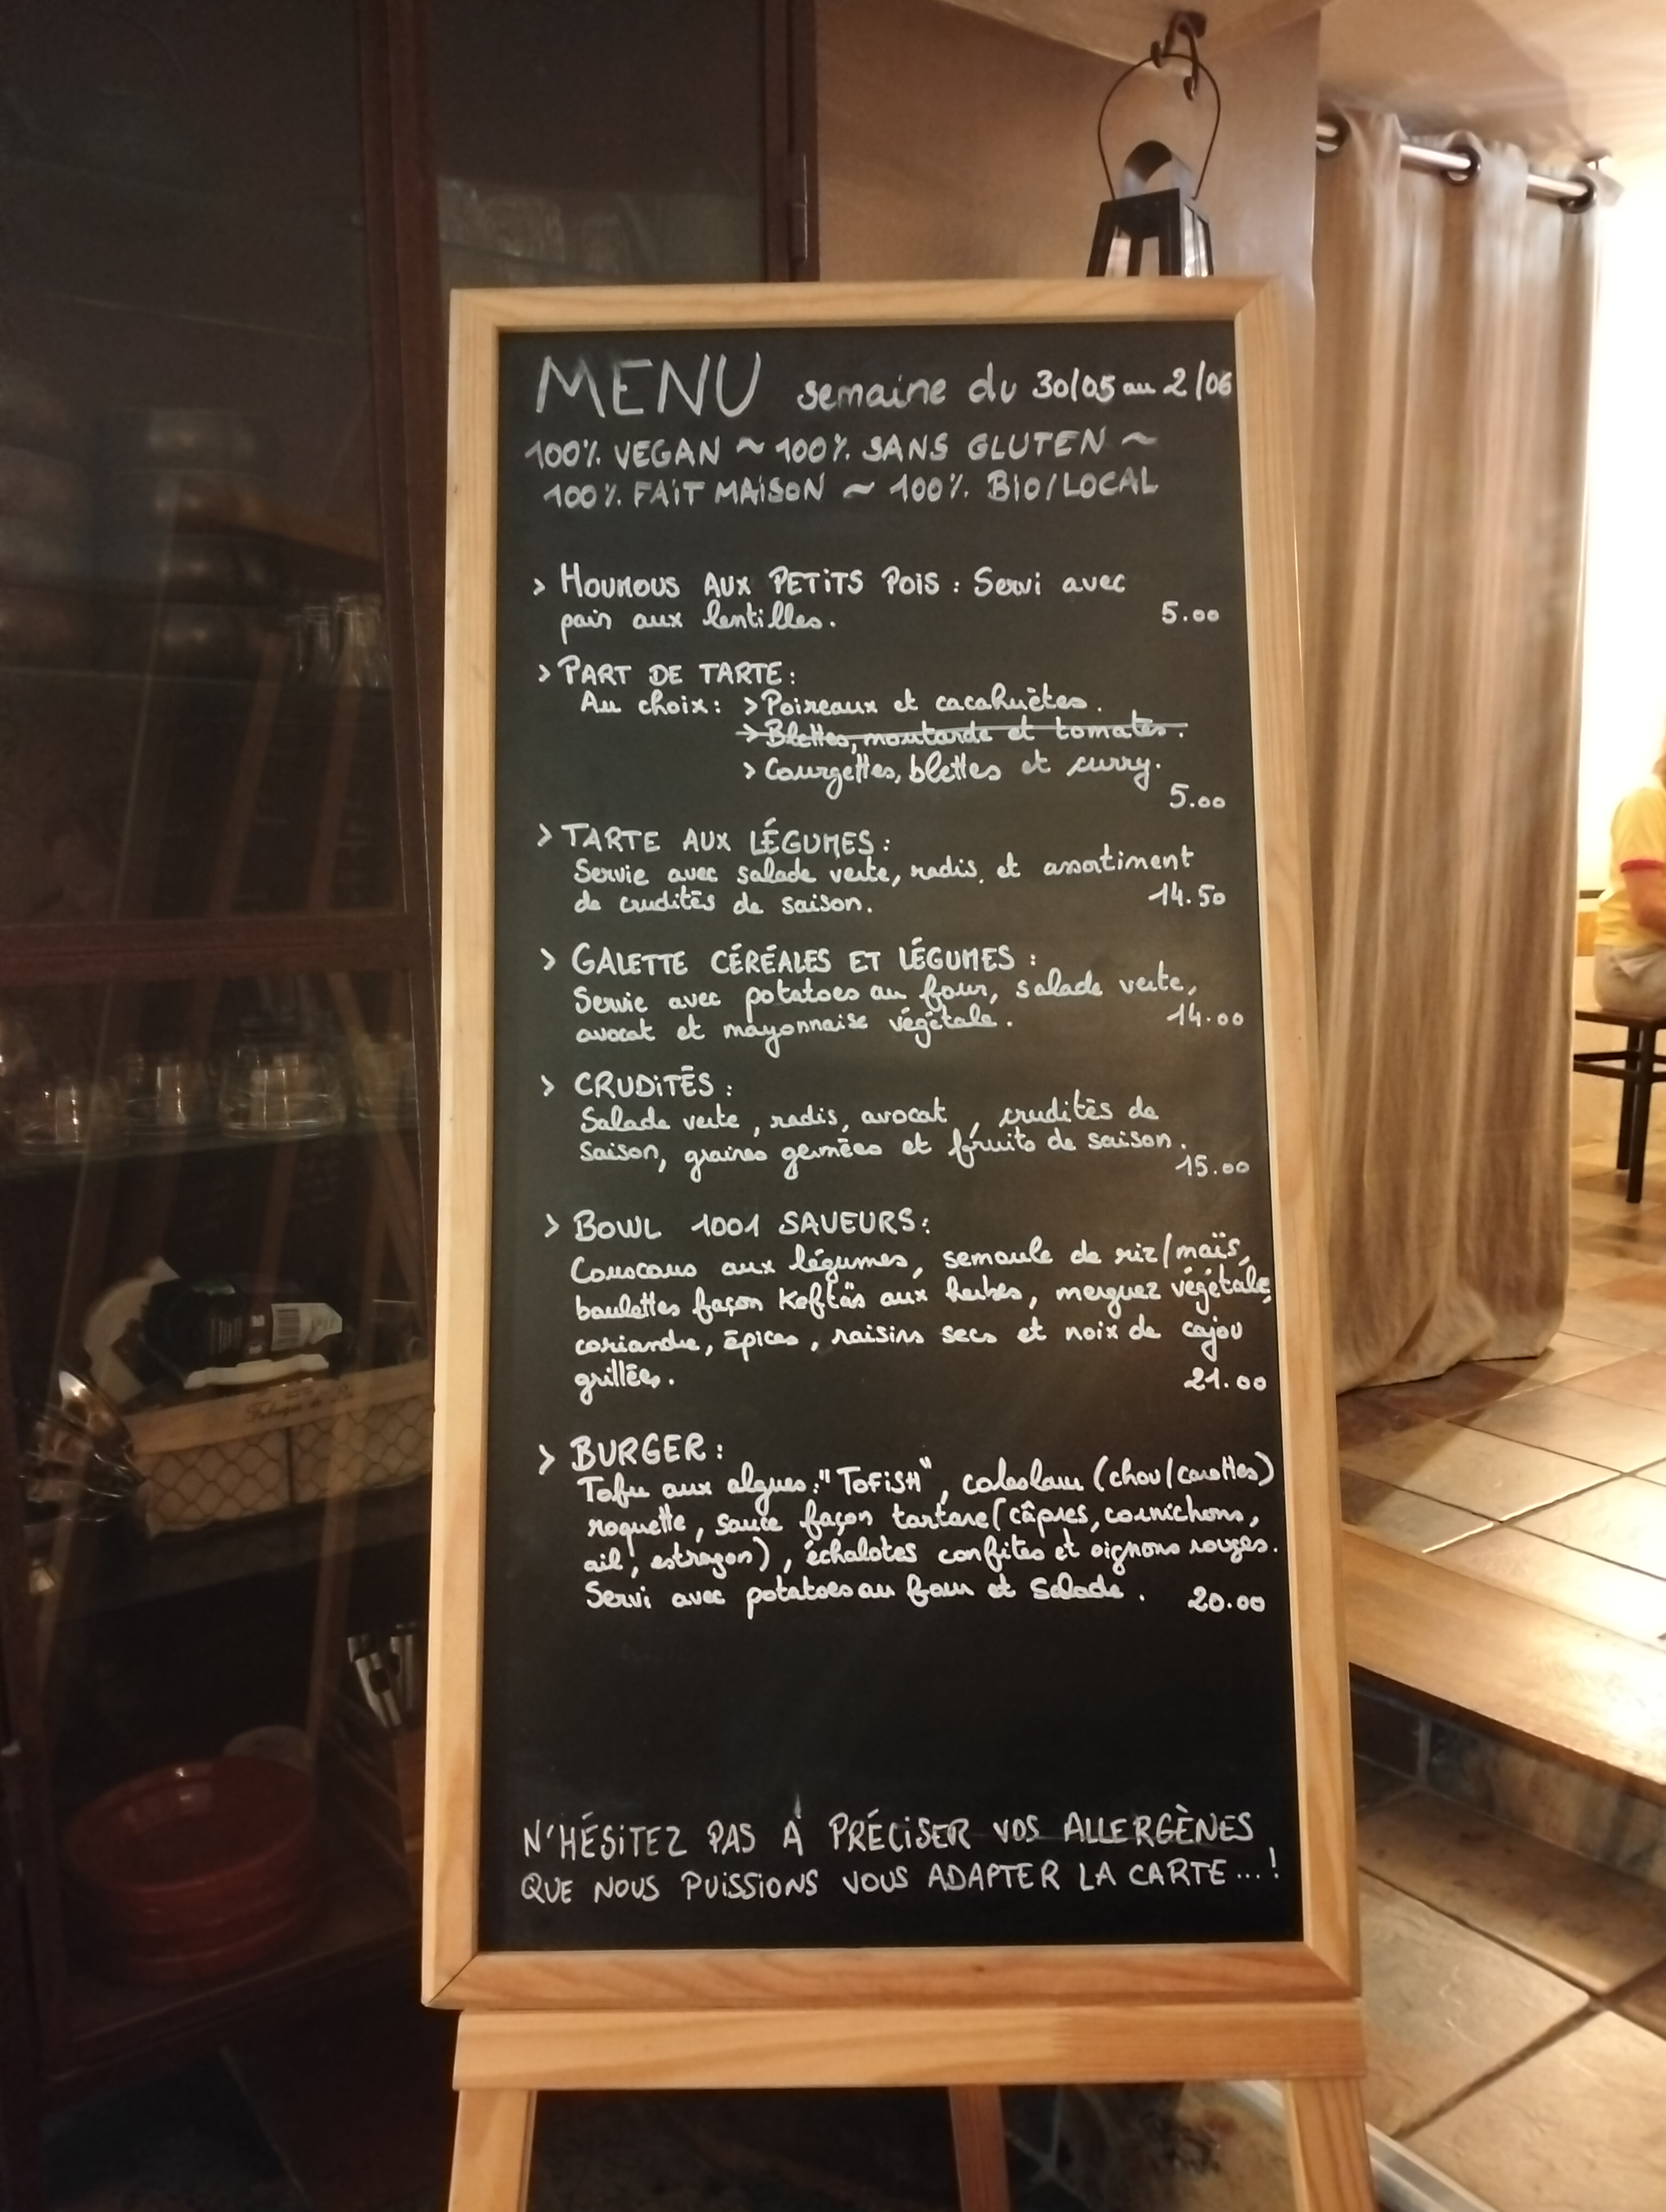 MENU semaine du 30/05 au 2/06
100% VEGAN ~ 100% SANS GLUTEN ~
100% FAIT MAISON ~ 100% BIO/LOCAL
> HOUMOUS AUX PETITS POIS : Servi avec
pain aux lentilles. 5.00
> PART DE TARTE :
Au choix : > Poireaux et cacahuètes.
> Blettes, moutarde et tomates.
> Courgettes, blettes et curry.
5.00
> TARTE AUX LÉGUMES :
Servie avec salade verte, radis, et assortiment
de crudités de saison. 14.50
> GALETTE CÉRÉALES ET LÉGUMES :
Servie avec potatoes au four, salade verte,
avocat et mayonnaise végétale. 14.00
> CRUDITÉS :
Salade verte, radis, avocat, crudités de
saison, graines germées et fruits de saison.
15.00
> BOWL 1001 SAVEURS :
Couscous aux légumes, semoule de riz/maïs,
boulettes façon Keftäs aux herbes, merguez végétale,
coriandre, épices, raisins secs et noix de cajou
grillées. 21.00
> BURGER :
Tofu aux algues : "TOFISH", coleslaw (chou/carottes)
roquette, sauce façon tartare (câpres, cornichons,
ail, estragon), échalotes confites et oignons rouges.
Servi avec potatoes au four et Salade. 20.00
N'HÉSITEZ PAS À PRÉCISER VOS ALLERGÈNES
QUE NOUS PUISSIONS VOUS ADAPTER LA CARTE...!